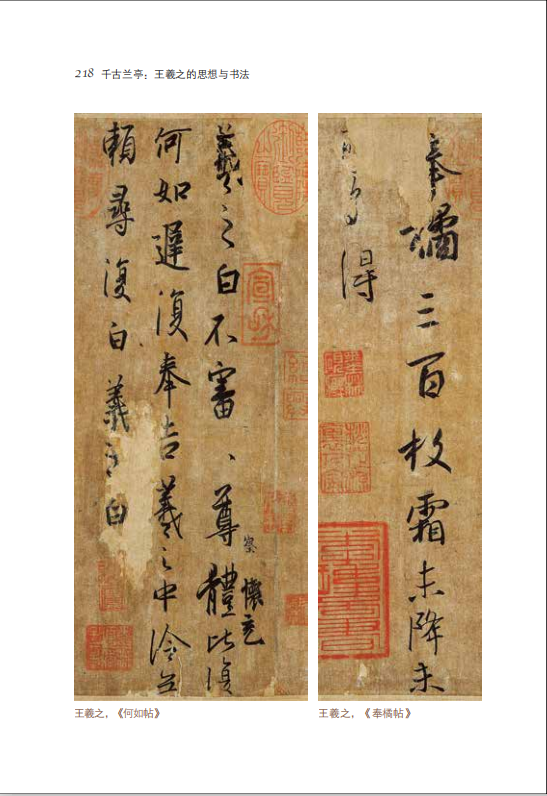 218 千古兰亭：王羲之的思想与书法
羲之白不審、尊體比復
察
懷充
何如遲復奉告羲之中冷無
賴尋復白羲之白
宣和
奉橘三百枚霜未降未
可多得
王羲之，《何如帖》
王羲之，《奉橘帖》